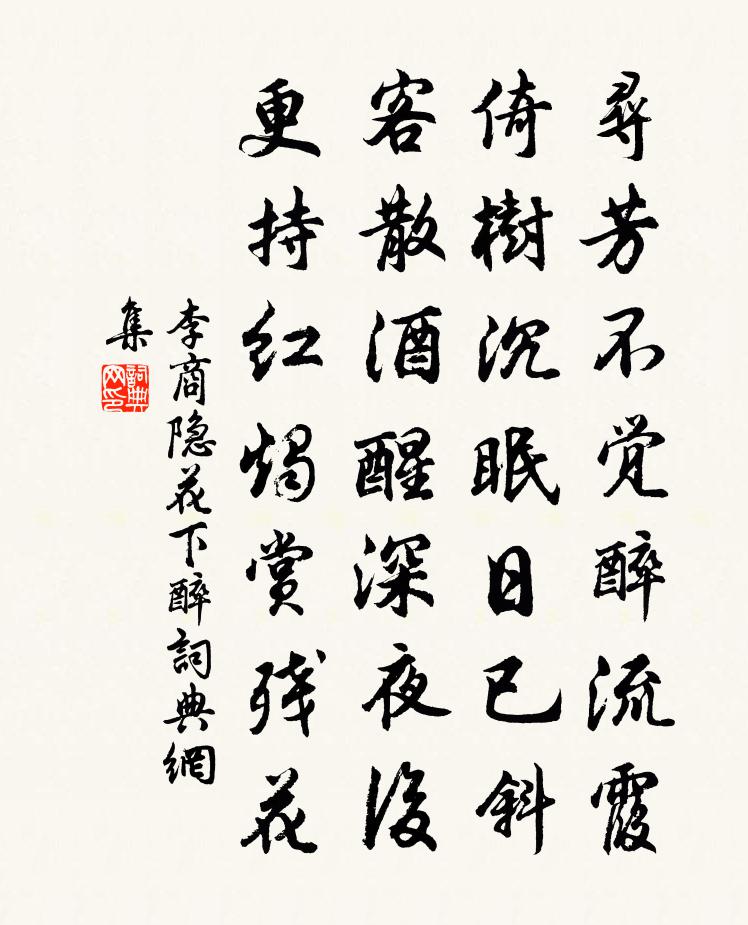 尋芳不觉醉流霞
倚樹沉眠日已斜
客散酒醒深夜後
更持红燭賞残花
李商隐花下醉詞典網
集
詞典
网印